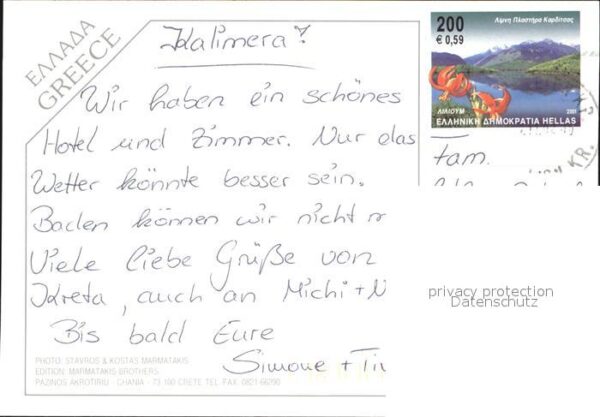 ΕΛΛΑΔΑ
GREECE
Kalimera!
Wir haben ein schönes
Hotel und Zimmer. Nur das
Wetter könnte besser sein.
Baden können wir nicht
Viele liebe Grüße von
Kreta, auch an Michi +
Bis bald Eure
Simone +
PHOTO: STAVROS & KOSTAS MARMATAKIS
EDITION: MARMATAKIS BROTHERS
PAZINOS AKROTIRIU - CHANIA - 73 100 CRETE TEL. FAX. 0821-66290
Λίμνη Πλαστήρα Καρδίτσας
200
€ 0,59
ΛΙΛΙΟΥΜ
2001
ΕΛΛΗΝΙΚΗ ΔΗΜΟΚΡΑΤΙΑ HELLAS
KR.
Fam.
privacy protection
Datenschutz